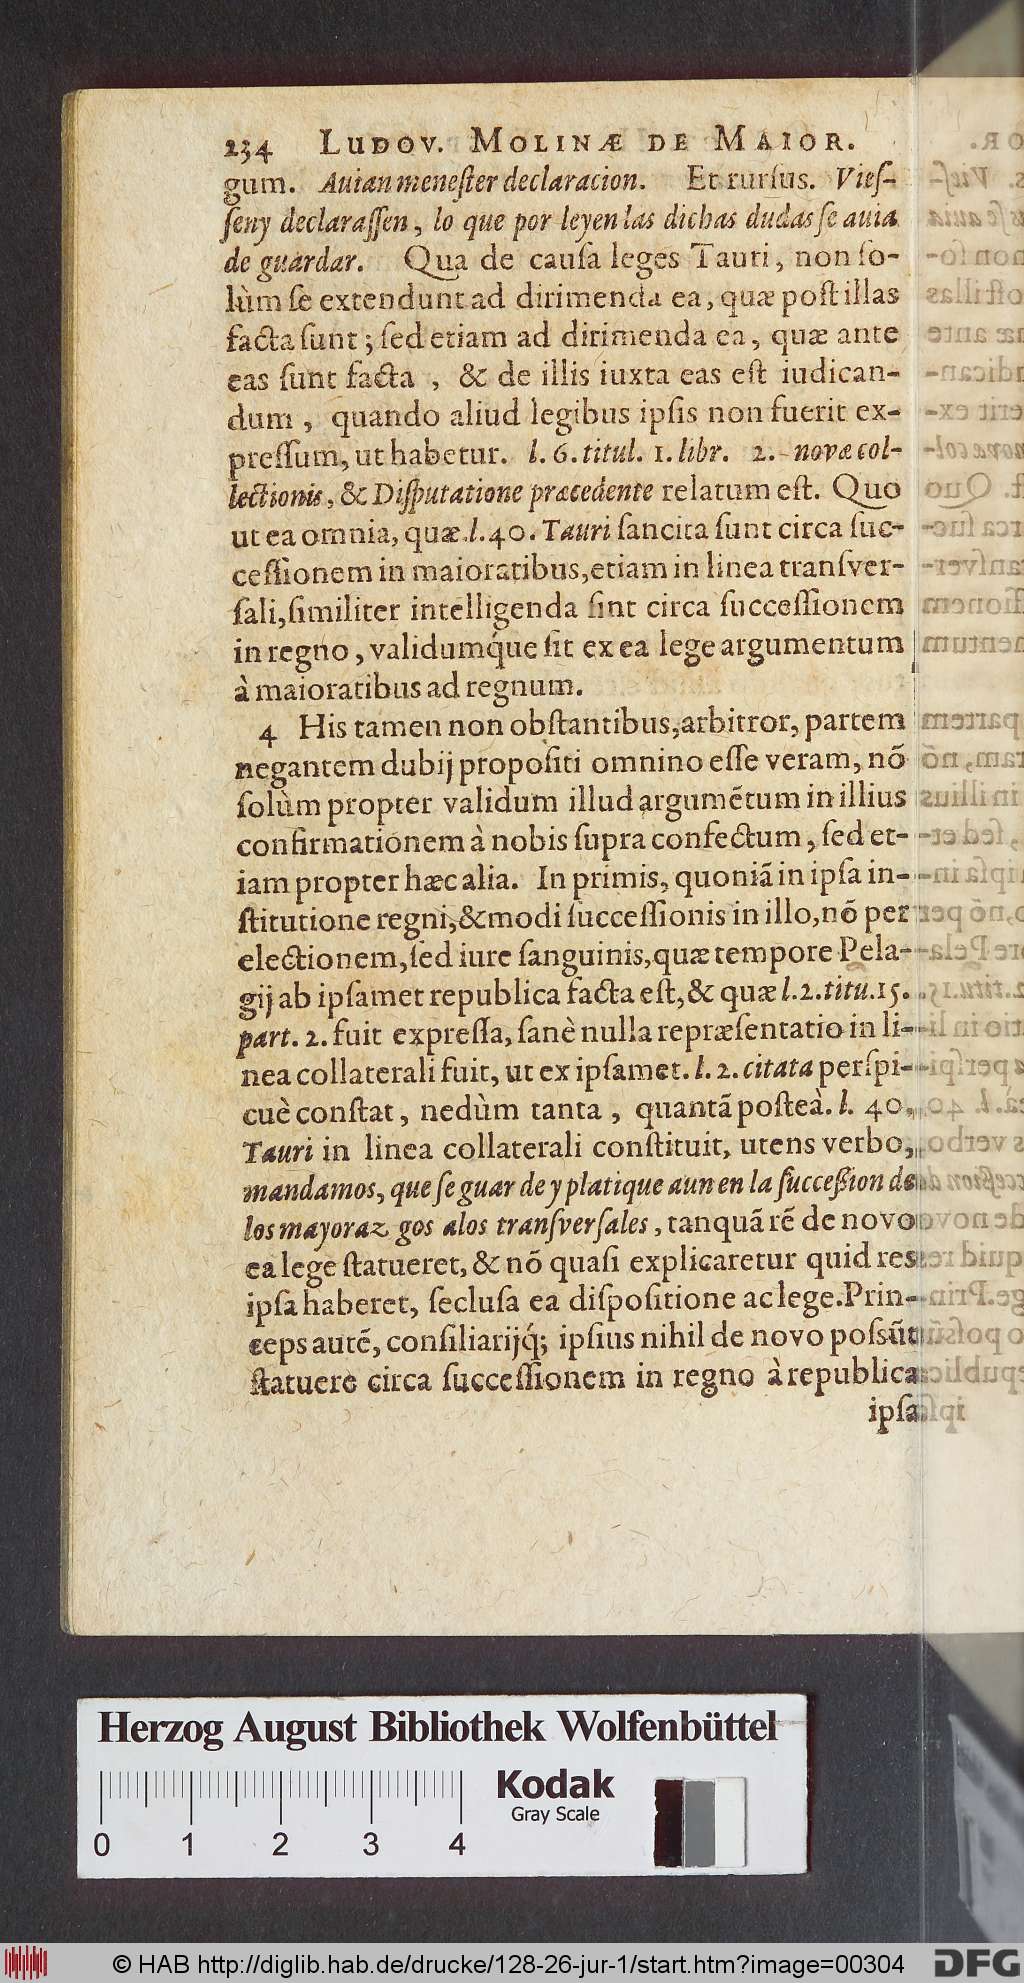 234 LUDOV. MOLINÆ DE MAIOR.
gum. Auian menester declaracion. Et rursus. Vies-
ſeny declaraſſen, lo que por ley en las dichas dudas ſe auia
de guardar. Qua de cauſa leges Tauri, non ſo-
lùm ſe extendunt ad dirimenda ea, quæ poſt illas
facta ſunt; ſed etiam ad dirimenda ea, quæ ante
eas ſunt facta , & de illis iuxta eas eſt iudican-
dum , quando aliud legibus ipſis non fuerit ex-
preſſum, ut habetur. l. 6. titul. 1. libr. 2. novæ col-
lectionis, & Diſputatione præcedente relatum eſt. Quo
ut ea omnia, quæ l. 40. Tauri ſancita ſunt circa ſuc-
ceſſionem in maioratibus, etiam in linea tranſver-
ſali, ſimiliter intelligenda ſint circa ſucceſſionem
in regno, validumq́ue ſit ex ea lege argumentum
à maioratibus ad regnum.
4 His tamen non obſtantibus, arbitror, partem
negantem dubij propoſiti omnino eſſe veram, nõ
ſolùm propter validum illud argumẽtum in illius
confirmationem à nobis ſupra confectum, ſed et-
iam propter hæc alia. In primis, quoniã in ipſa in-
ſtitutione regni, & modi ſucceſſionis in illo, nõ per
electionem, ſed iure ſanguinis, quæ tempore Pela-
gij ab ipſamet republica facta eſt, & quæ l. 2. titu. 15.
part. 2. fuit expreſſa, ſanè nulla repræſentatio in li-
nea collaterali fuit, ut ex ipſamet. l. 2. citata perſpi-
cuè conſtat, nedùm tanta , quantã poſteà. l. 40,
Tauri in linea collaterali conſtituit, utens verbo,
mandamos, que ſe guarde y platique aun en la ſucceßion de
los mayorazgos a los tranſverſales, tanquã rẽ de novo
ea lege ſtatueret, & nõ quaſi explicaretur quid res
ipſa haberet, ſecluſa ea diſpoſitione ac lege. Prin-
ceps autẽ, conſiliarijq́; ipſius nihil de novo poſsũt
ſtatuere circa ſucceſſionem in regno à republica
ipſa
Herzog August Bibliothek Wolfenbüttel
Kodak
Gray Scale
0 1 2 3 4
© HAB http://diglib.hab.de/drucke/128-26-jur-1/start.htm?image=00304
DFG